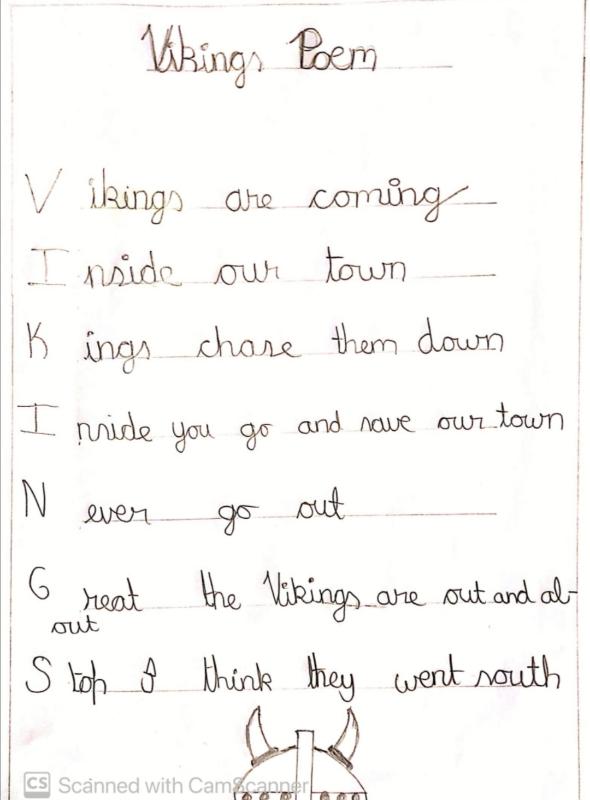 Vikings Poem
Vikings are coming
Inside our town
Kings chase them down
Inside you go and save our town
Never go out
Great the Vikings are out and ab-
out
Stop I think they went south
CS Scanned with CamScanner